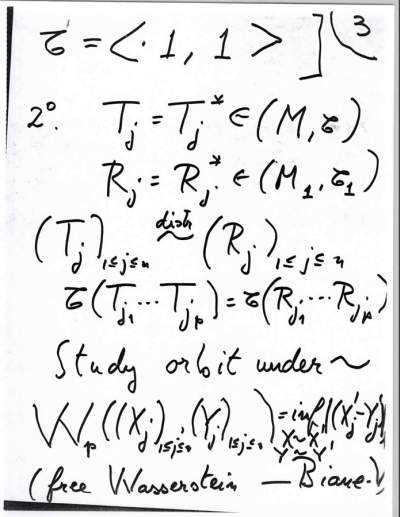 τ = < · 1, 1 > ] 3
2°. T_j = T_j^* ∈ (M, τ)
R_j = R_j^* ∈ (M_1, τ_1)
(T_j)_{1≤j≤n} distr ~ (R_j)_{1≤j≤n}
τ(T_{j1} ... T_{jp}) = τ(R_{j1} ... R_{jp})
Study orbit under ~
W_p((X_j)_{1≤j≤n}, (Y_j)_{1≤j≤n}) = inf ||(X'_j - Y'_j)
X ~ X'
Y ~ Y'
(free Wasserstein — Biane-V